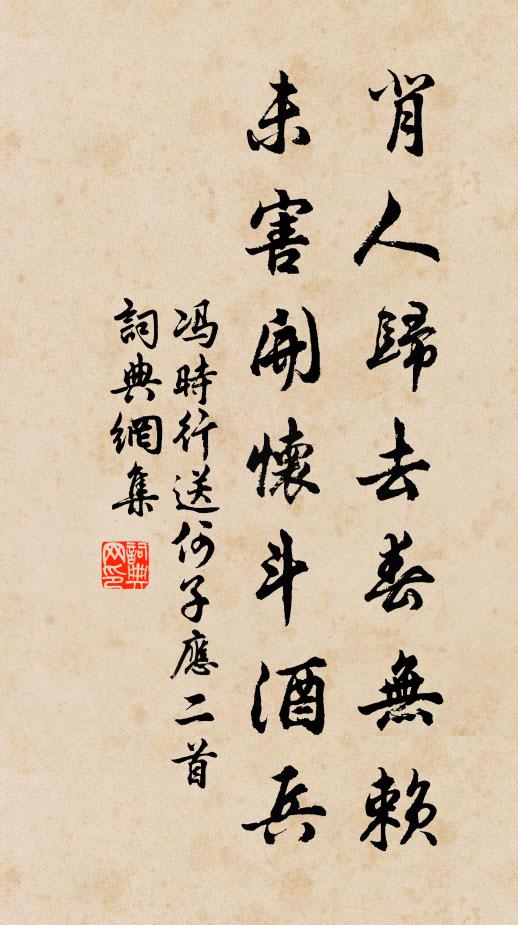 背人歸去春無賴
未害開懷斗酒兵
冯時行送何子應二首
詞典網集
詞典
网印